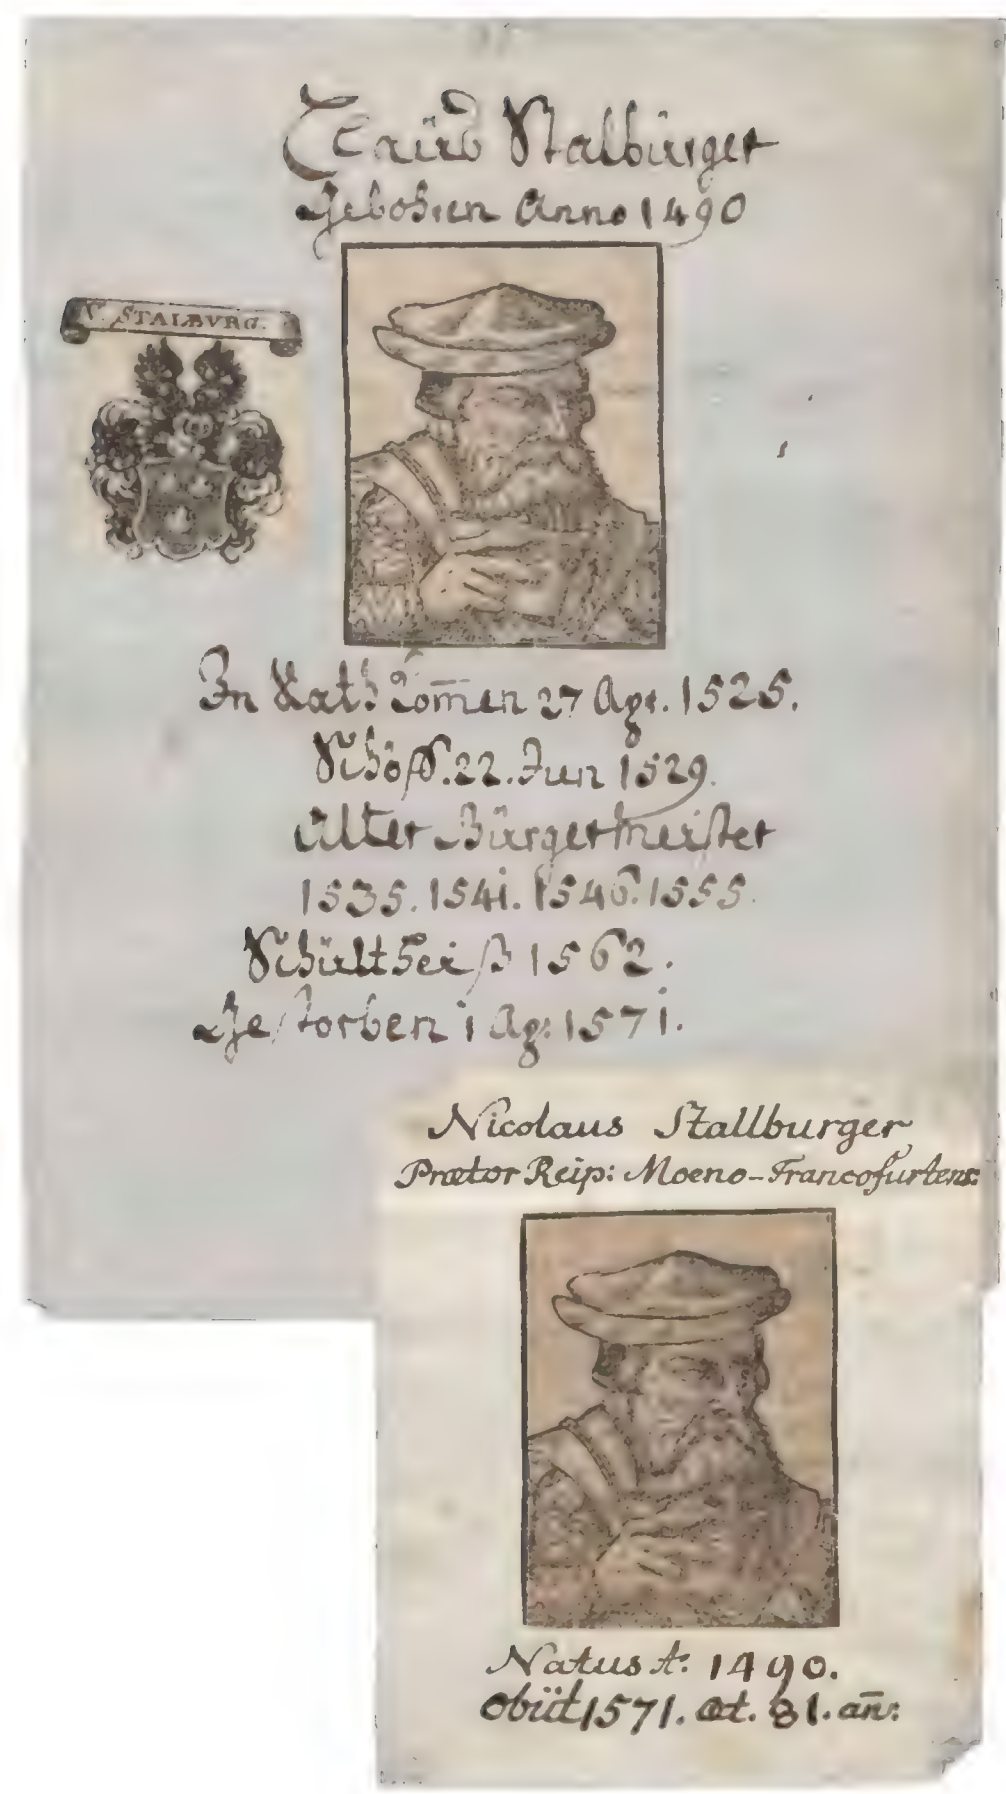 Claüß Stalbürger
Gebohren Anno 1490
V. STALBVRG.
In Rath kom̄en 27 Apr. 1525.
Schöff. 22. Jun 1529.
Älter Bürgermeister
1535. 1541. 1546. 1555.
Schültheiß 1562.
Gestorben 1 Ap: 1571.
Nicolaus Stallburger
Prætor Reip: Moeno-Francofurtens:
Natus A: 1490.
obiit 1571. æt. 81. an̄: